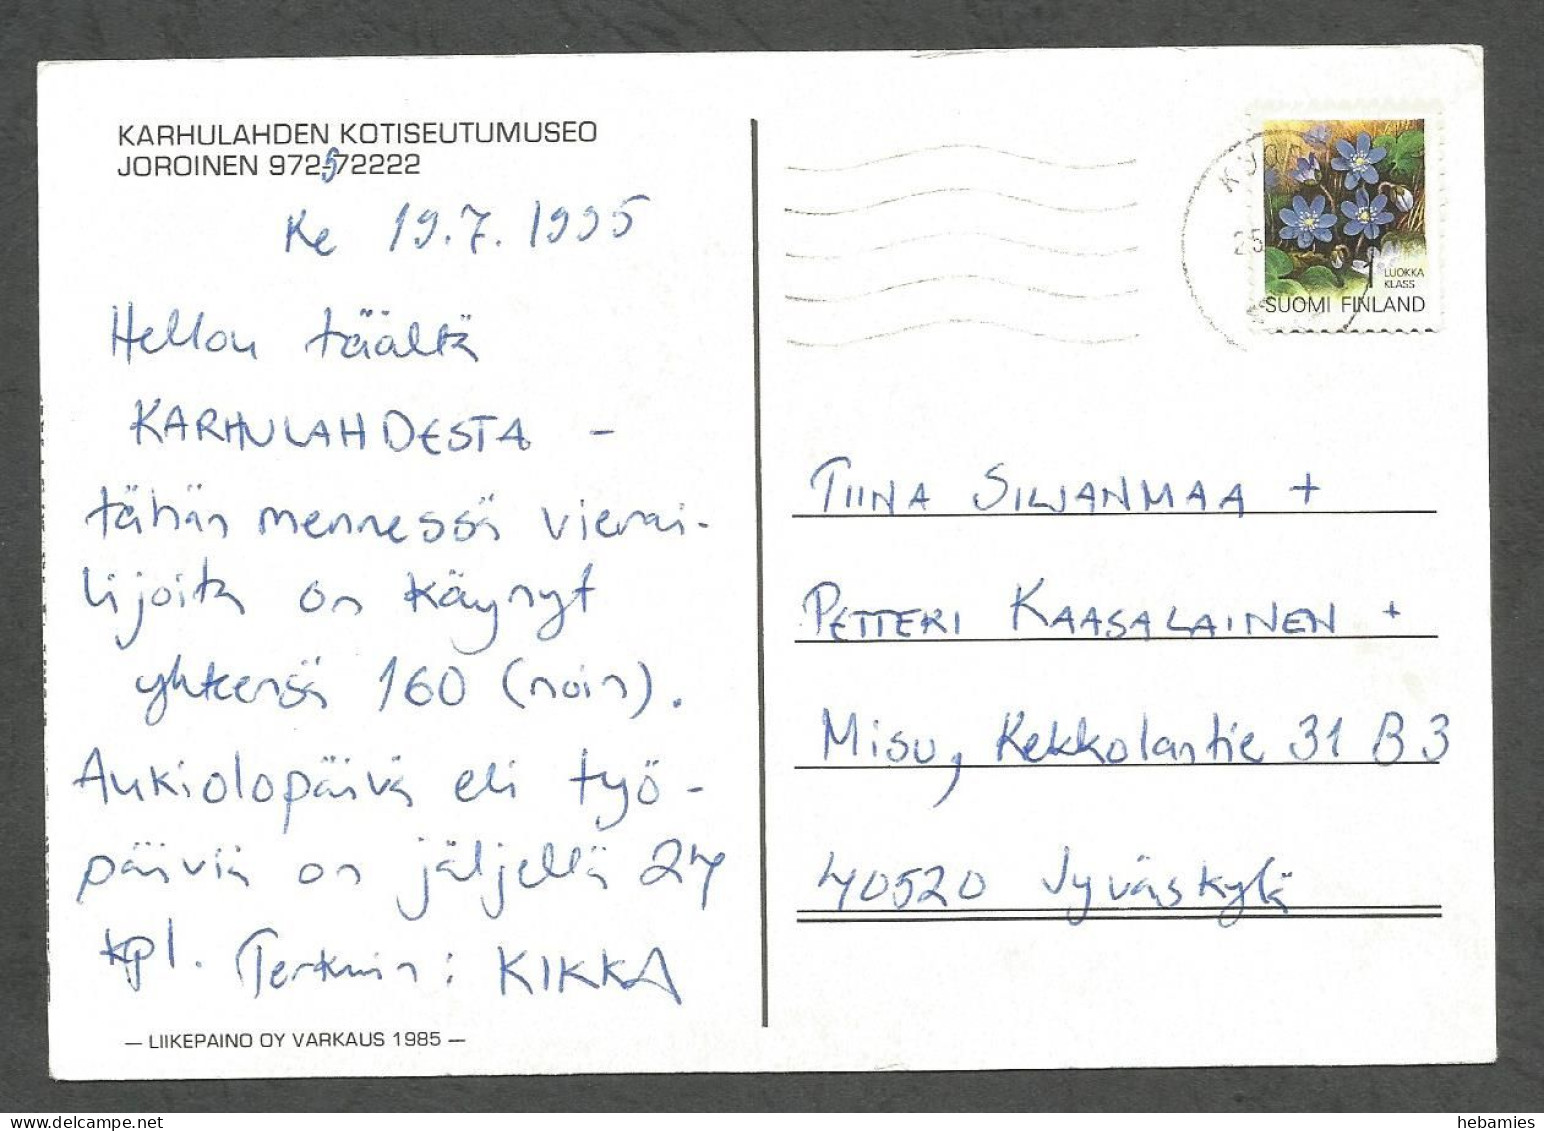 KARHULAHDEN KOTISEUTUMUSEO
JOROINEN 972572222
Ke 19.7.1995
Hellou täältä
KARHULAHDESTA -
tähän mennessä vierai-
lijoita on käynyt
yhteensä 160 (noin).
Aukiolopäiviä eli työ-
päiviä on jäljellä 24
kpl. Terkuin: KIKKA
— LIIKEPAINO OY VARKAUS 1985 —
25
1 LUOKKA
KLASS
SUOMI FINLAND
TIINA SILJANMAA +
PETTERI KAASALAINEN +
Misu, Kekkolantie 31 B 3
40520 Jyväskylä
hebamies